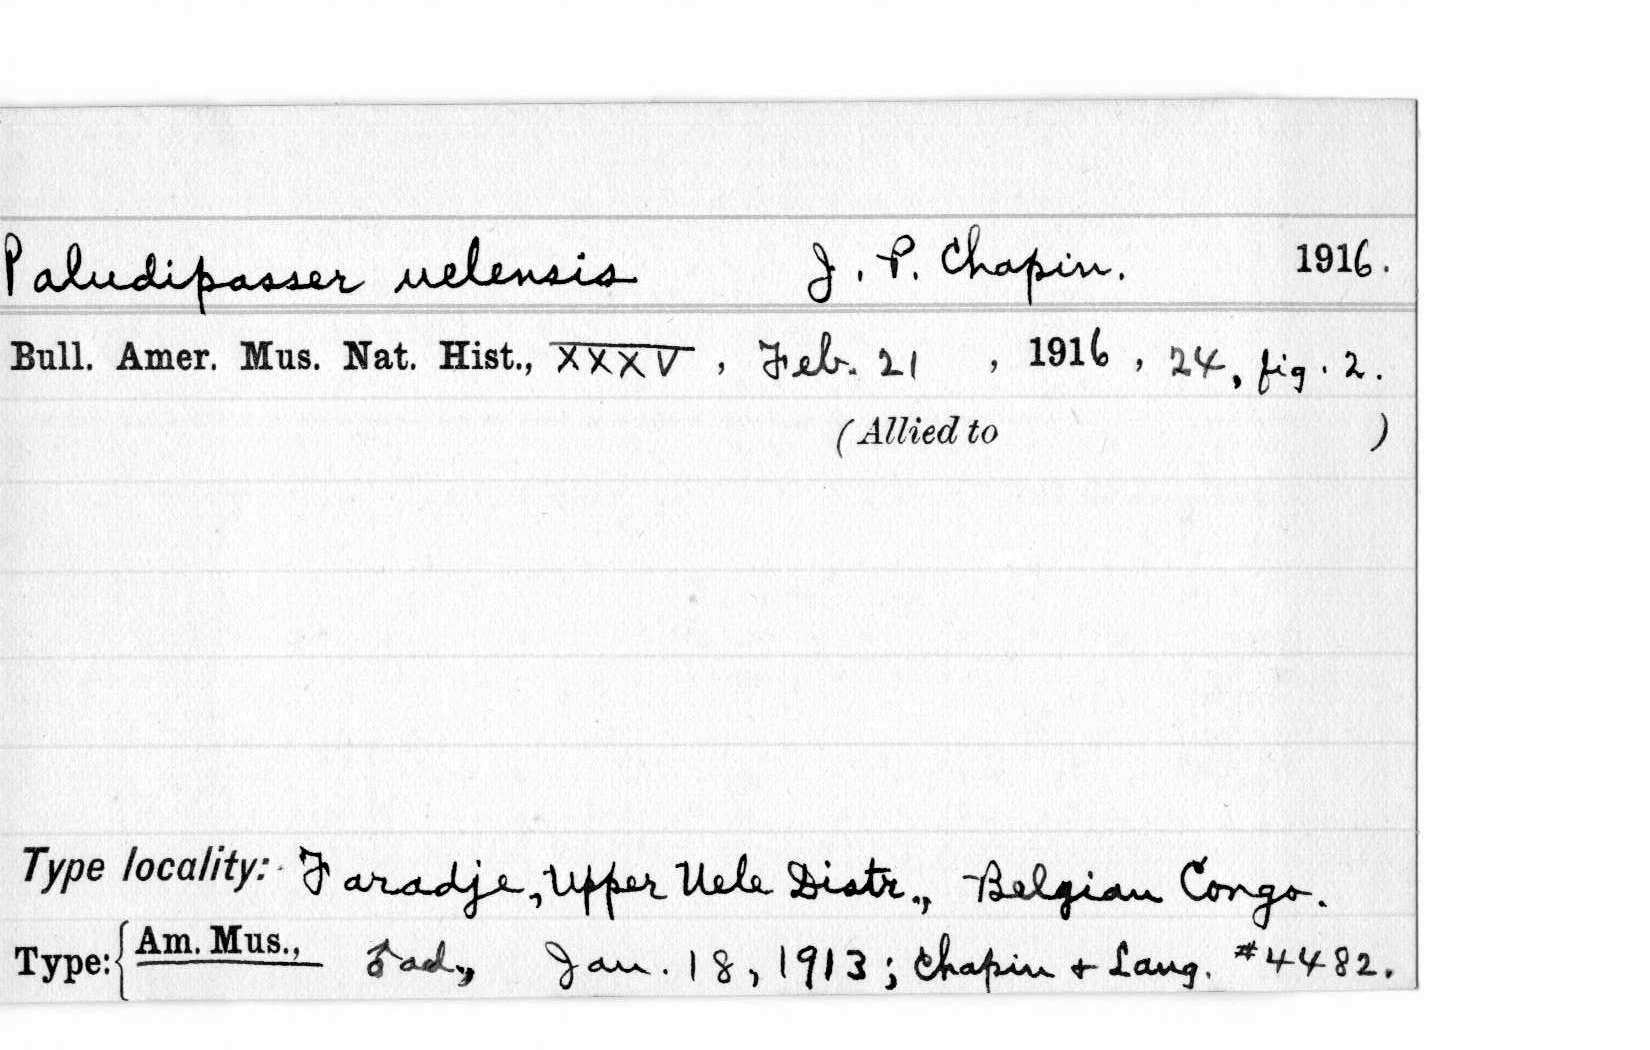 Paludipasser uelensis J. P. Chapin. 1916.
Bull. Amer. Mus. Nat. Hist., XXXV, Feb. 21, 1916, 24, fig. 2.
(Allied to )
Type locality: Faradje, Upper Uele Distr., Belgian Congo.
Type: { Am. Mus., ♂ ad., Jan. 18, 1913; Chapin + Lang. #4482.